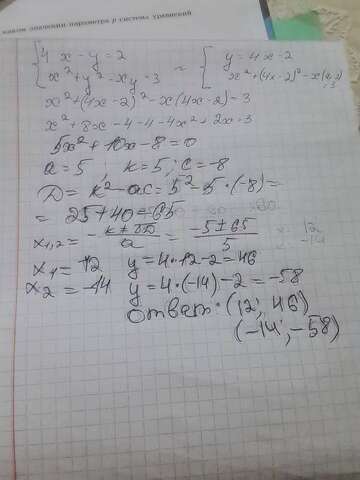 каком значении параметра p система уравнений
{ 4x - y = 2 ~ { y = 4x - 2
x² + y² - xy = 3 x² + (4x - 2)² - x(4x-2) = 3
x² + (4x - 2)² - x(4x - 2) = 3
x² + 8x - 4 - 4 - 4x² + 2x = 3
5x² + 10x - 8 = 0
a = 5, k = 5; c = -8
D = k² - ac = 5² - 5·(-8) =
= 25 + 40 = 65
x₁,₂ = -k±√D/a = -5±65/5 12 -14
x₁ = 12 y = 4·12 - 2 = 46
x₂ = -14 y = 4·(-14) - 2 = -58
Ответ: (12; 46)
(-14; -58)